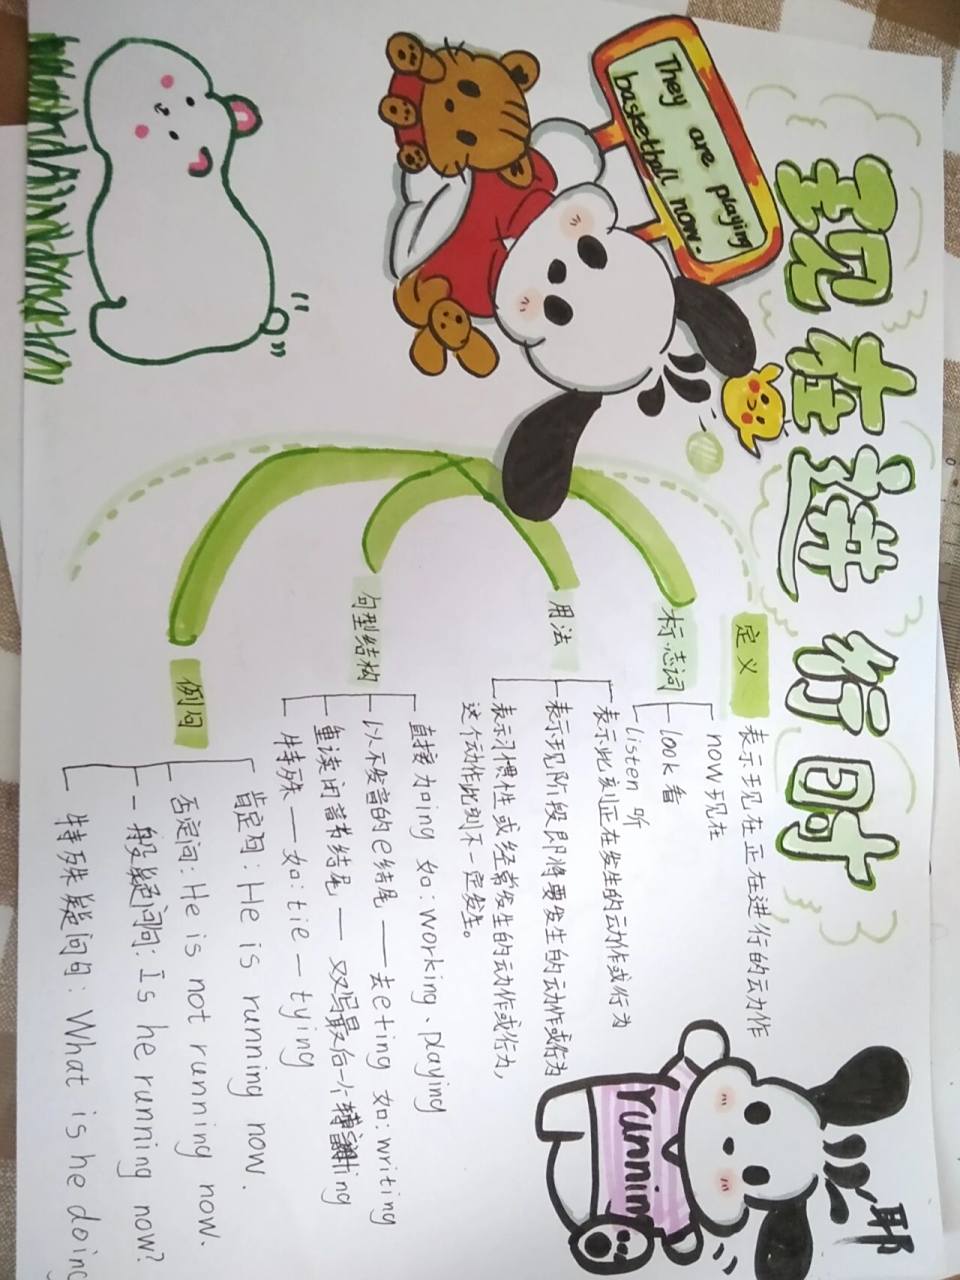 现在进行时
They are playing
basketball now.
定义
表示现在正在进行的动作
标志词
now 现在
look 看
listen 听
用法
表示此刻正在发生的动作或行为
表示现阶段即将要发生的动作或行为
表示习惯性或经常发生的动作或行为,
这个动作此刻不一定发生。
句型结构
直接加ing 如:working、playing
以不发音的e结尾——去eting 如:writing
重读闭音节结尾——双写最后一个
特殊——如:tie—tying
例句
肯定句:He is running now.
否定句:He is not running now.
一般疑问句:Is he running now?
特殊疑问句:What is he doing
running
耶